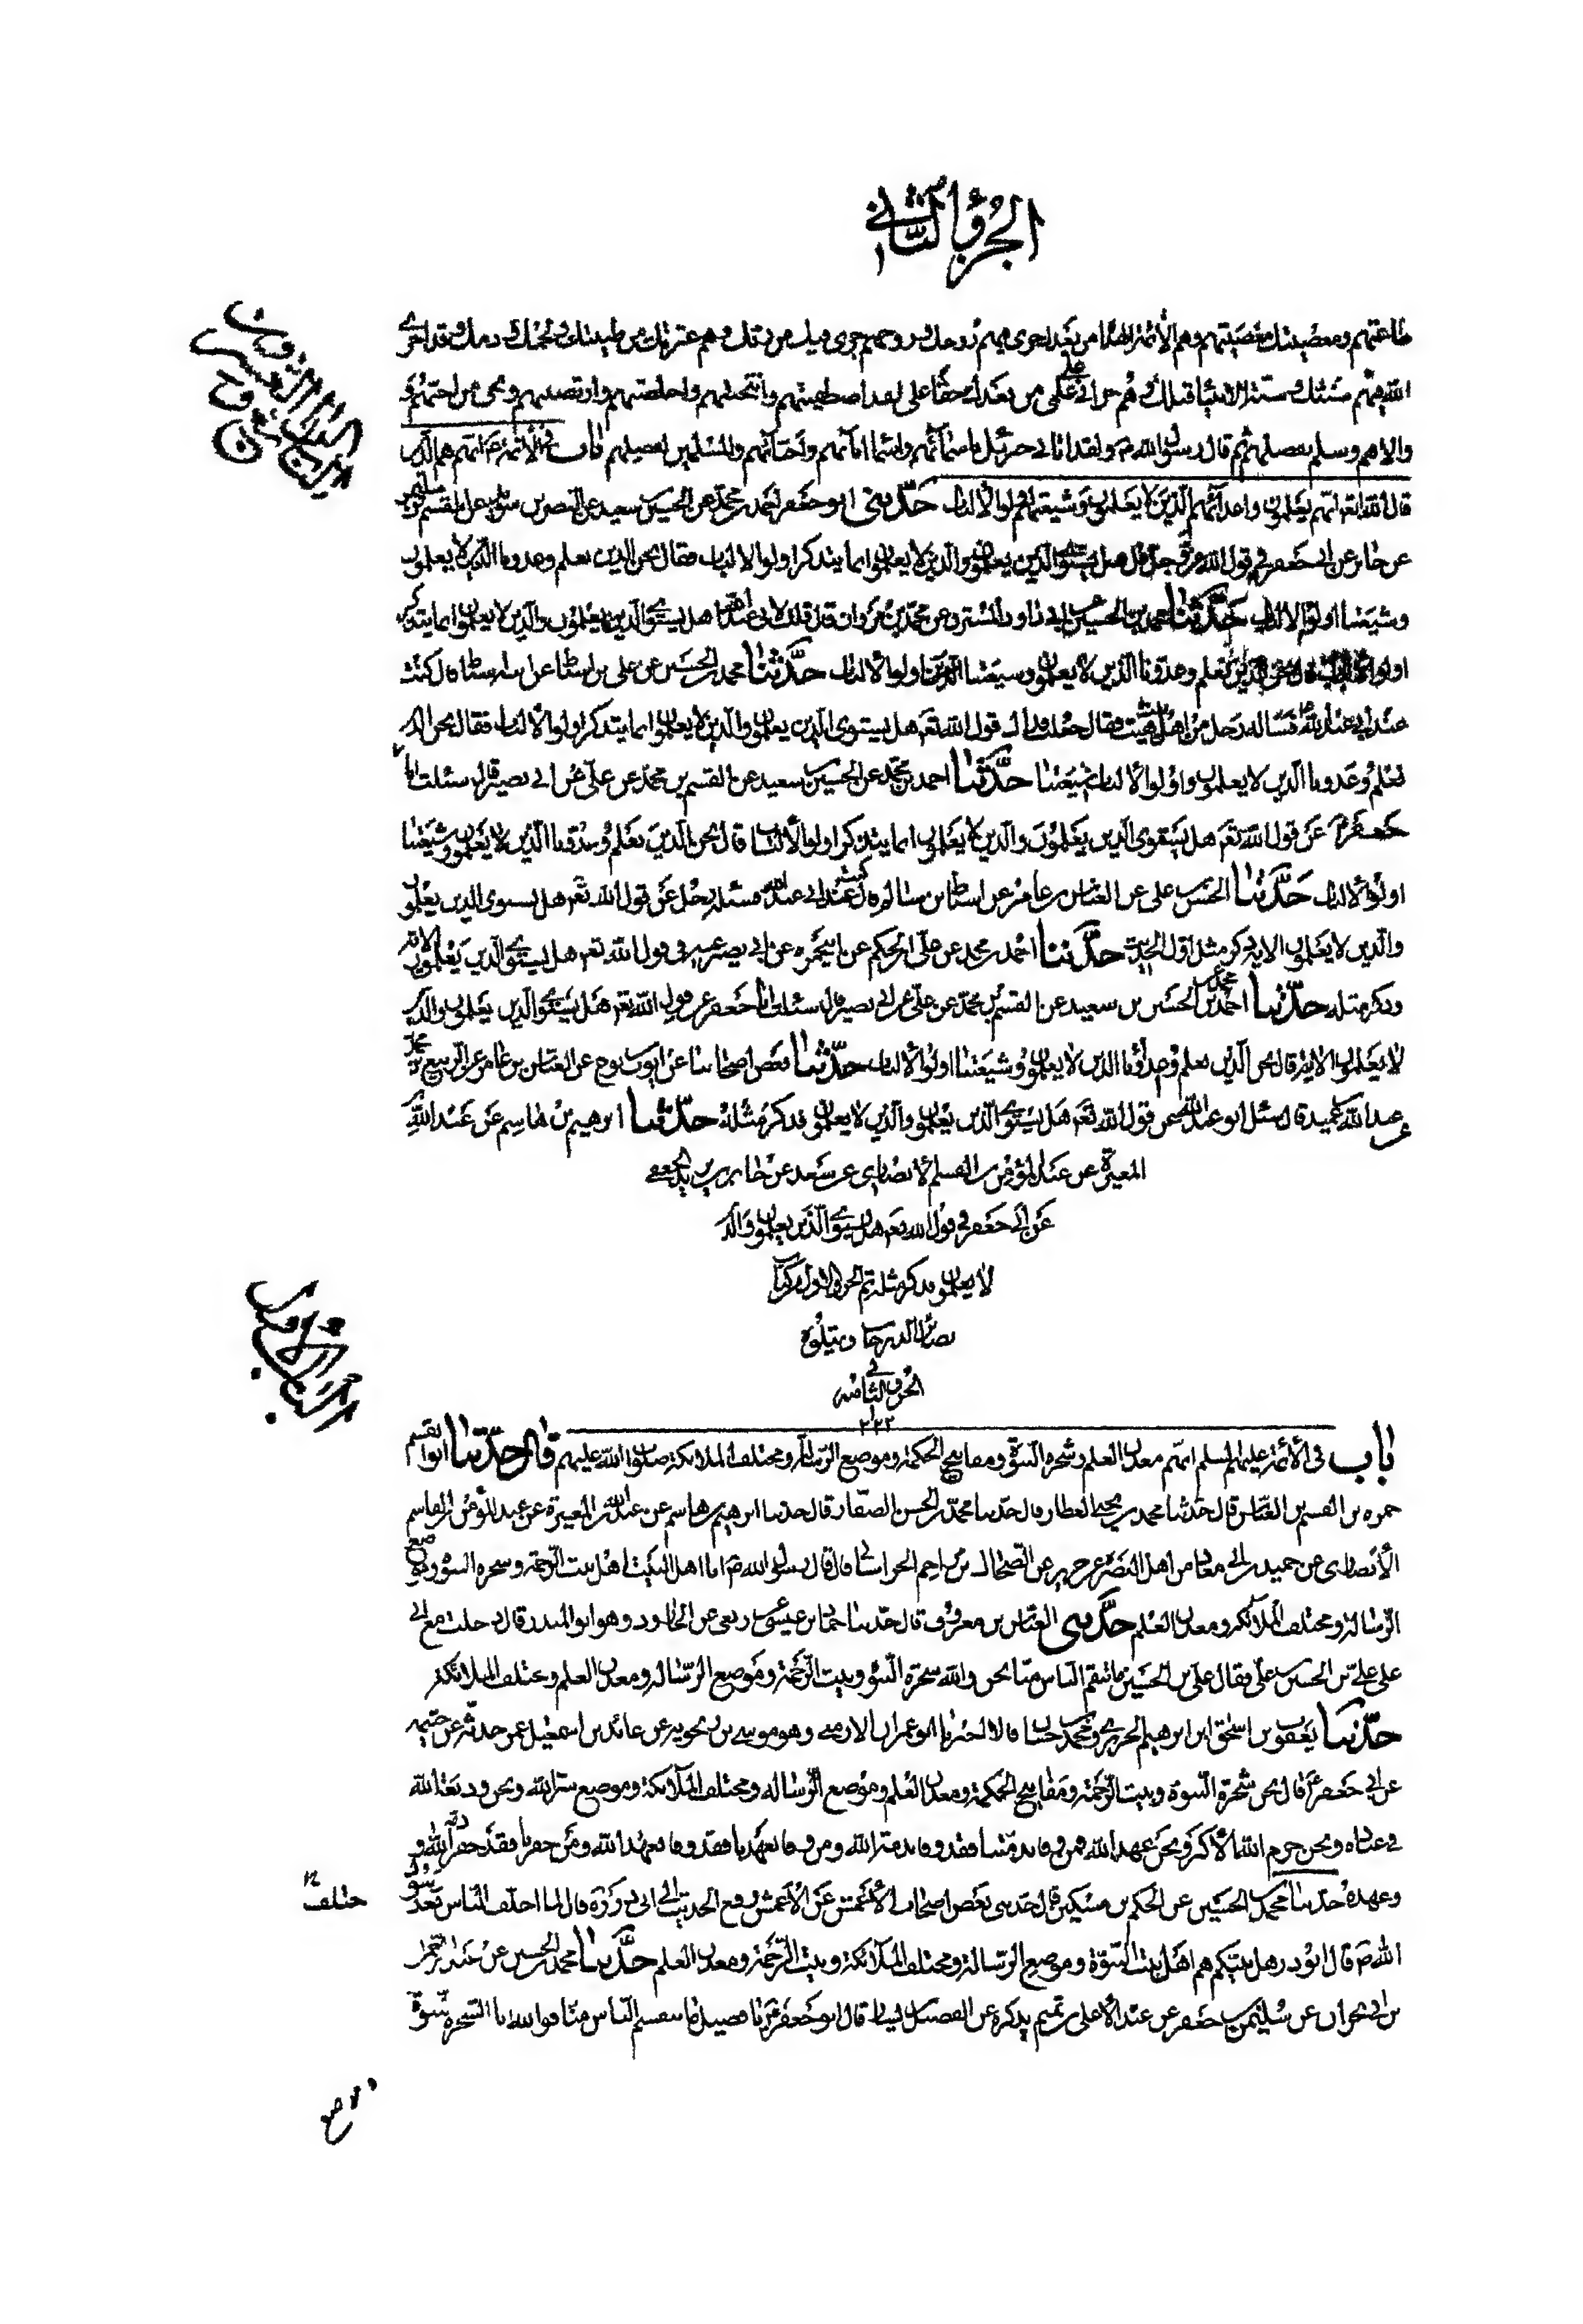 الجزؤ الثاني
طاعتهم ومعصيتك معصيتهم وهم الأئمة الهداة من بعدك جرى فيهم روحك وروحهم جرى فيك من ربك وهم عترتك من طينتك ولحمك ودمك وقد اجرى
الله فيهم سنتك وسنة الانبيا قبلك وهم خزاني على علمى من بعدك حقا على لقد اصطفيتهم وانتجبتهم واخلصتهم وارتضيتهم ونجى من احبهم و
والاهم وسلم بفضلهم ثم قال رسول الله ص ولقد اتانى جبرئيل باسمائهم واسما ابائهم واحبائهم والمسلمين لفضلهم باب في الأئمة ع انهم هم الذين
قال الله تع انهم يعلمون واعدائهم الذين لا يعلمون وشيعتهم اولوا الألباب حدثنى ابو جعفر احمد بن محمد عن الحسين بن سعيد عن النضر بن سويد عن القسم بن سليمن
عن جابر عن ابى جعفر في قول الله عز وجل هل يستوى الذين يعلمون والذين لا يعلمون انما يتذكر اولوا الالباب فقال نحن الذين نعلم وعدونا الذين لا يعلمون
وشيعتنا اولوا الالباب حدثنا محمد بن الحسين عن ابى داود المسترق عن محمد بن مروان قال قلت لابى عبد الله هل يستوى الذين يعلمون والذين لا يعلمون انما يتذكر
اولوا الالباب قال نحن الذين نعلم وعدونا الذين لا يعلمون وشيعتنا اولوا الألباب حدثنا محمد بن الحسين عن على بن اسباط عن ابيه اسباط قال كنت
عند ابى عبد الله فساله رجل من اهل هيت فقال جعلت فداك قول الله تع هل يستوى الذين يعلمون والذين لا يعلمون انما يتذكر اولوا الألباب فقال نحن الذين
نعلم وعدونا الذين لا يعلمون واولوا الألباب شيعتنا حدثنا احمد بن محمد عن الحسين بن سعيد عن القسم بن محمد عن على عن ابى بصير قال سئلت ابا
جعفر ع عن قول الله تع هل يستوى الذين يعلمون والذين لا يعلمون انما يتذكر اولوا الألباب قال نحن الذين نعلم وعدونا الذين لا يعلمون وشيعتنا
اولوا الألباب حدثنا الحسن بن على عن العباس بن عامر عن اسباط بن سالم قال كنت عند ابى عبد الله فسئله رجل عن قول الله تع هل يستوى الذين يعلمون
والذين لا يعلمون الاية فذكر مثل اول الحديث حدثنا احمد بن محمد عن على بن الحكم عن ابى حمزه عن ابى بصير في قول الله تع هل يستوى الذين يعلمون الاية
وذكر مثله حدثنا احمد بن محمد عن الحسين بن سعيد عن القسم بن محمد عن على عن ابى بصير قال سئلت ابا جعفر عن قول الله تع هل يستوى الذين يعلمون والذين
لا يعلمون الاية قال نحن الذين نعلم وعدونا الذين لا يعلمون وشيعتنا اولوا الألباب حدثنا بعض اصحابنا عن ايوب بن نوح عن العباس بن عامر عن الربيع بن محمد
عن عبد الله قال سئل ابو عبد الله عن قول الله تع هل يستوى الذين يعلمون والذين لا يعلمون فذكر مثله حدثنا ابرهيم بن هاشم عن عبد الله بن
المغيرة عن عبد المؤمن بن القسم الأنصارى عن سعد عن جابر بن يزيد الجعفى
عن ابى جعفر في قول الله تع هل يستوى الذين يعلمون والذين
لا يعلمون فذكر مثله تم الجزؤ الاول من كتاب
بصائر الدرجات ويتلوه
الجزؤ الثانى
باب في الأئمة عليهم السلم انهم معدن العلم وشجرة النبوة ومفاتيح الحكمة وموضع الرسالة ومختلف الملائكة صلوات الله عليهم قال حدثنا ابوا القسم
حمزه بن القسم بن العباس قال حدثنا محمد بن يحيى العطار قال حدثنا محمد بن الحسن الصفار قال حدثنا ابرهيم بن هاشم عن عبد الله بن المغيرة عن عبد المؤمن بن القاسم
الأنصارى عن من اهل البصرة عن جرير عن الضحاك بن مزاحم الخراسانى قال قال رسول الله ص انا اهل البيت اهل بيت الرحمة وشجره النبوة وموضع
الرسالة ومختلف الملائكة ومعدن العلم حدثنى العباس بن معروف قال حدثنا حماد بن عيسى عن ربعى عن الجارود وهو ابو المنذر قال دخلت مع ابى
على على بن الحسين بن على فقال على بن الحسين ما تنقم الناس منا نحن والله شجرة النبوة وبيت الرحمة وموضع الرسالة ومعدن العلم ومختلف الملائكة
حدثنا يعقوب بن اسحق ابن ابرهيم الحريرى ومحمد بن حسان قالا اخبرنا ابو عمران الارمنى وهو موسى بن زنجويه عن عائد بن اسمعيل عمن حدثه عن خيثمه
عن ابى جعفر ع قال نحن شجرة النبوة وبيت الرحمة ومفاتيح الحكمة ومعدن العلم وموضع الرساله ومختلف الملائكة وموضع سر الله ونحن وديعة الله
في عباده ونحن حرم الله الأكبر ونحن عهد الله فمن وفى بذمتنا فقد وفا بذمة الله ومن وفا بعهدنا فقد وفا بعهد الله ومن خفرنا فقد خفر ذمة الله و
وعهده حدثنا محمد بن الحسين عن الحكم بن مسكين قال حدثنى بعض اصحابنا الأعمش عن الأعمش رفع الحديث الى ابى ذر قال لما اختلف الناس بعد رسول
اختلف
الله ص قال ابو ذر هل بيتكم هم اهل بيت النبوة وموضع الرسالة ومختلف الملائكة وبيت الرحمة ومعدن العلم حدثنا محمد بن الحسين عن عبد الرحمن
بن ابى نجران عن سليمن بن جعفر عن عبد الأعلى بن تميم يذكره عن الفضيل بن يسار قال ابو جعفر ع يا فضيل ما ينقم الناس منا فوالله انا لشجرة النبوة